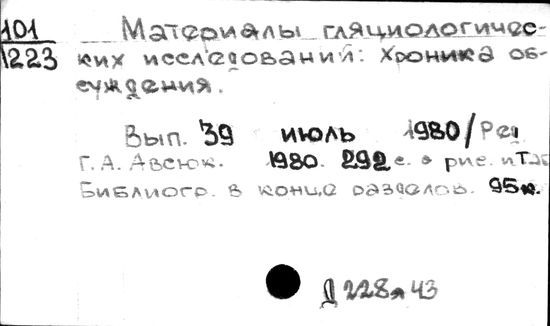 101 Материалы гляциологичес-
1223 ких исследований: Хроника об-
суждения.
Вып. 39 июль 1980/Ред
Г. А. Авсюк. 1980. 292 с. рис. и таб
Библиогр. в конце разделов. 95к.
Д 228я43